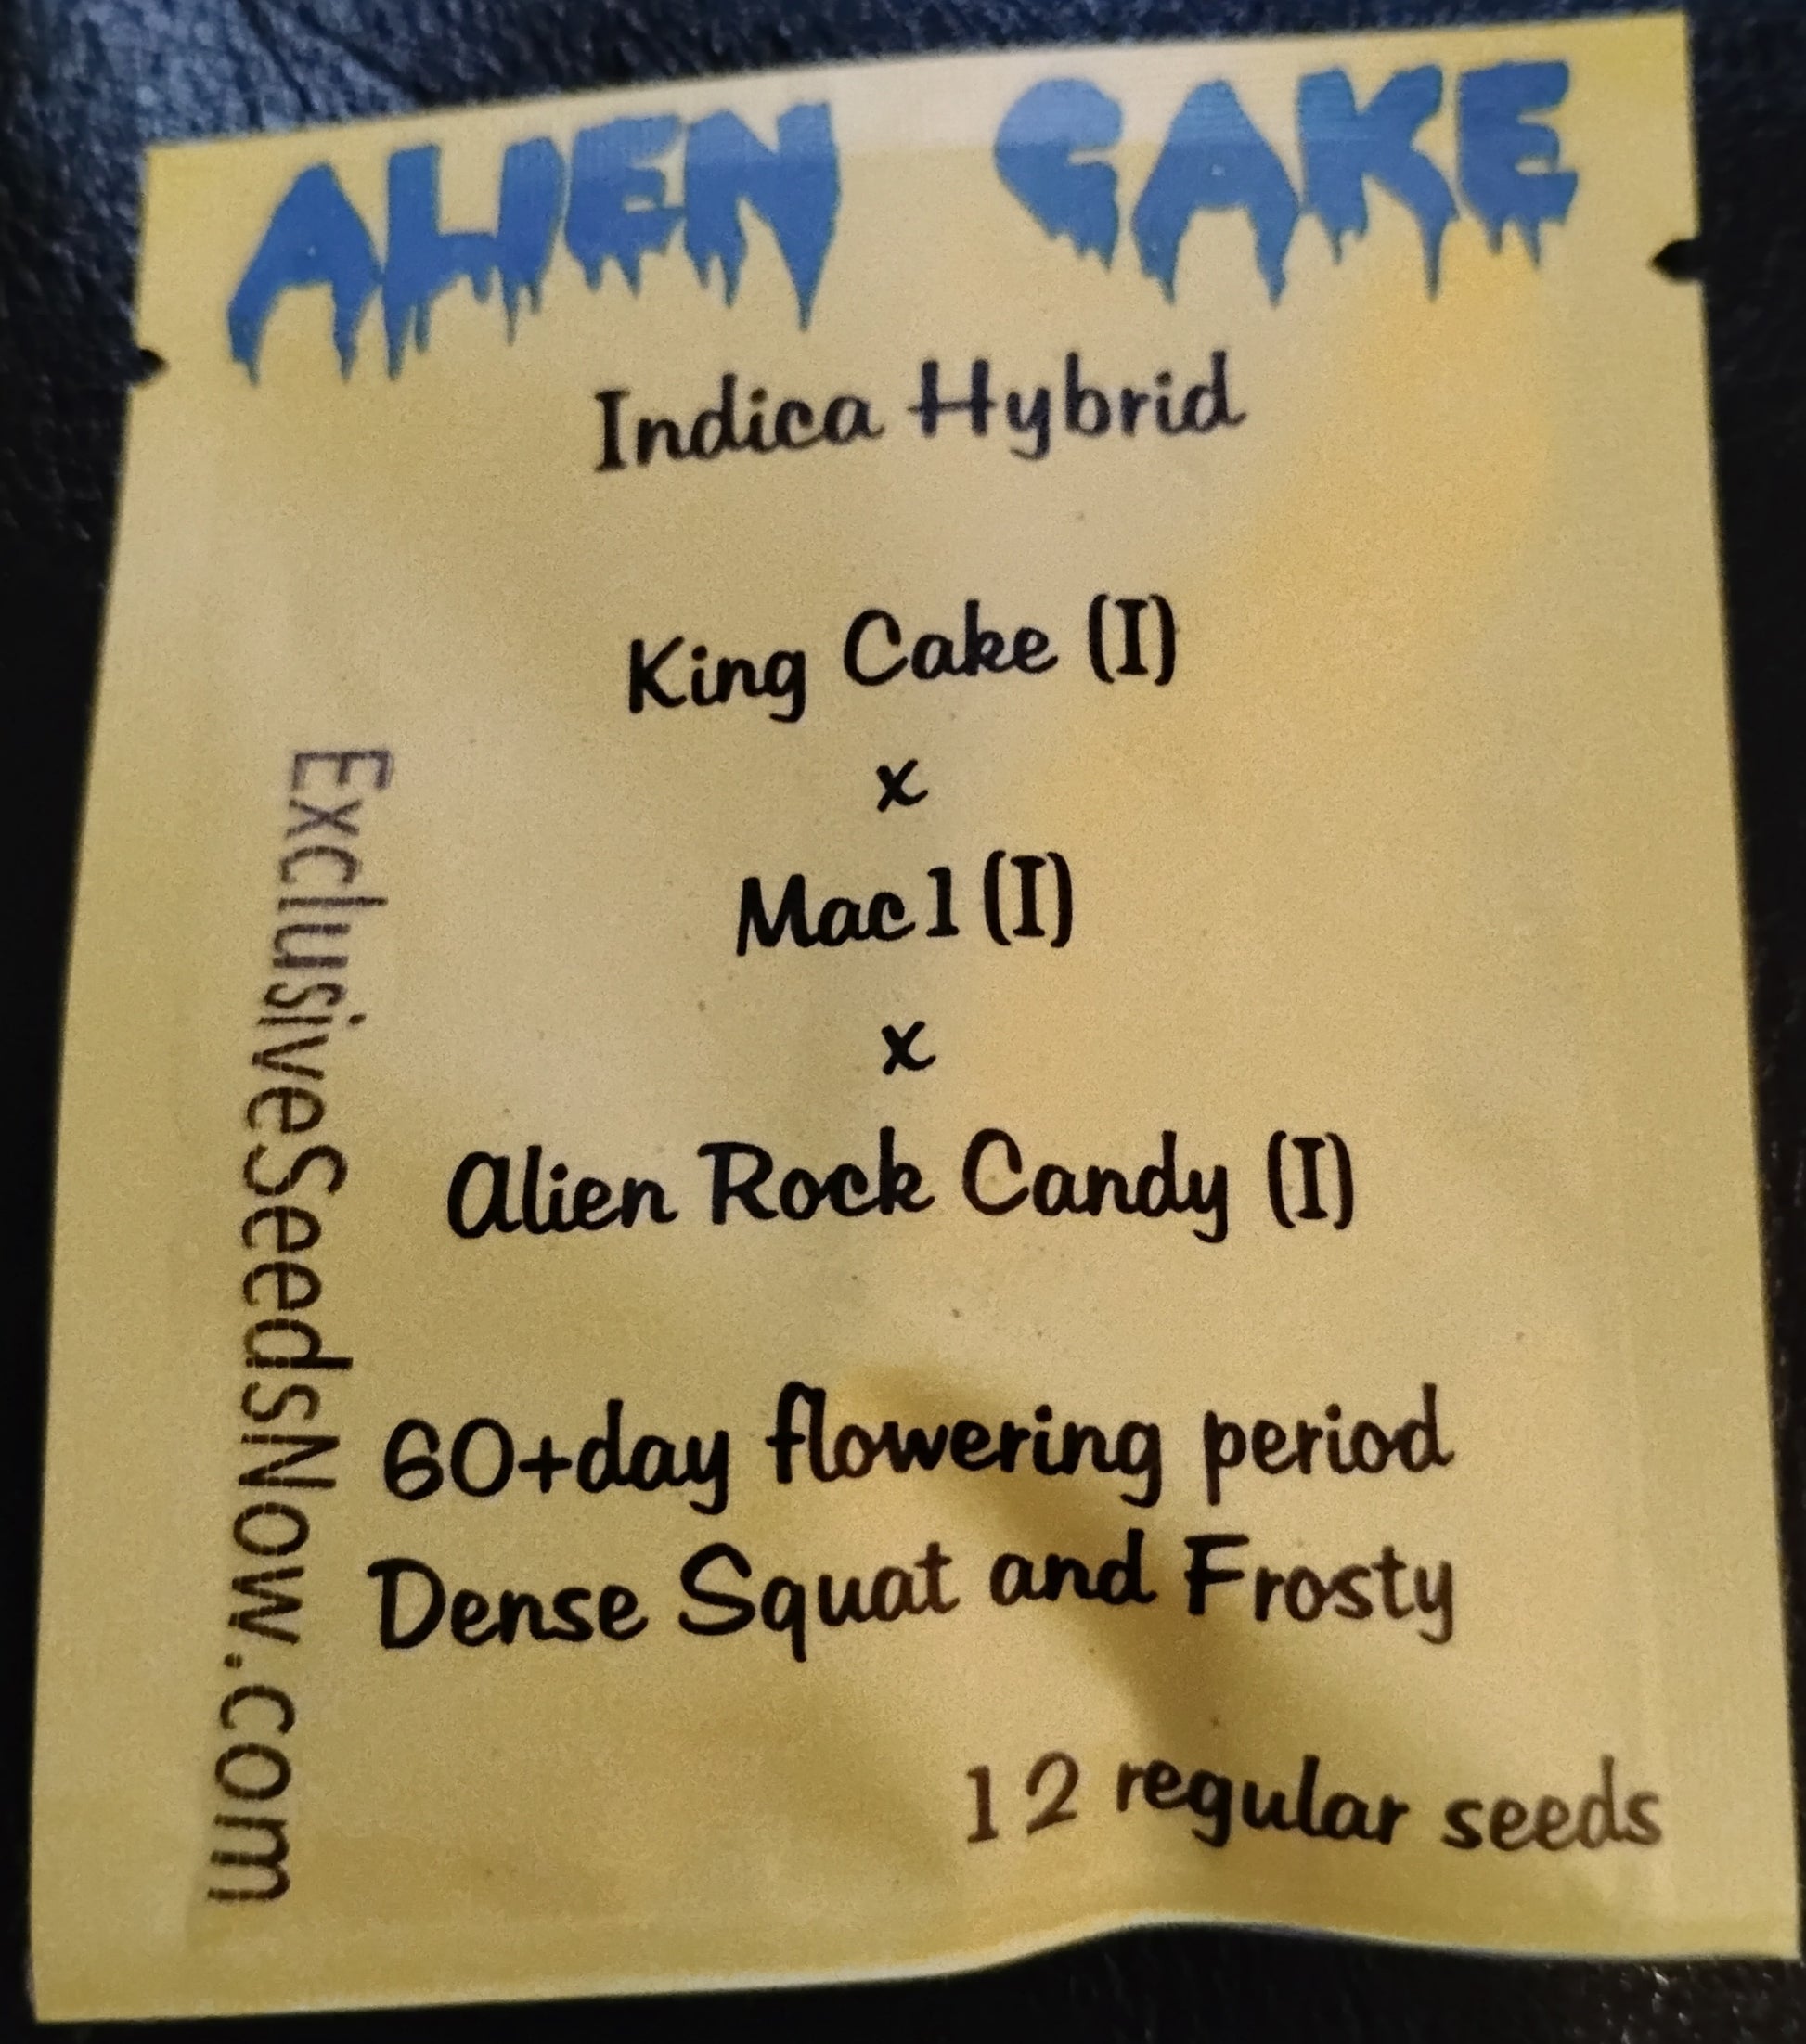 ALIEN CAKE
Indica Hybrid
King Cake (I)
x
Mac1 (I)
x
Alien Rock Candy (I)
60+day flowering period
Dense Squat and Frosty
12 regular seeds
ExclusiveSeedsNow.com